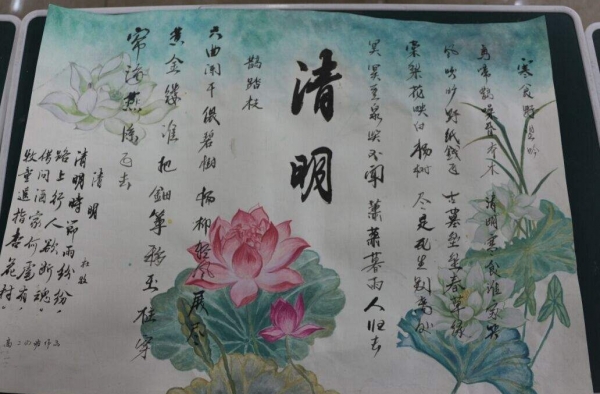 寒食野望吟
乌啼鹊噪昏乔木 清明寒食谁家哭
风吹旷野纸钱飞 古墓垒垒春草绿
棠梨花映白杨树 尽是死生别离处
冥冥重泉哭不闻 萧萧暮雨人归去
清明
鹊踏枝
六曲阑干偎碧树 杨柳 风 展尽
黄金缕 谁把钿筝移玉柱 穿
帘海燕 飞去
清明
杜牧
清明时节雨纷纷，
路上行人欲断魂。
借问酒家何处有，
牧童遥指杏花村。